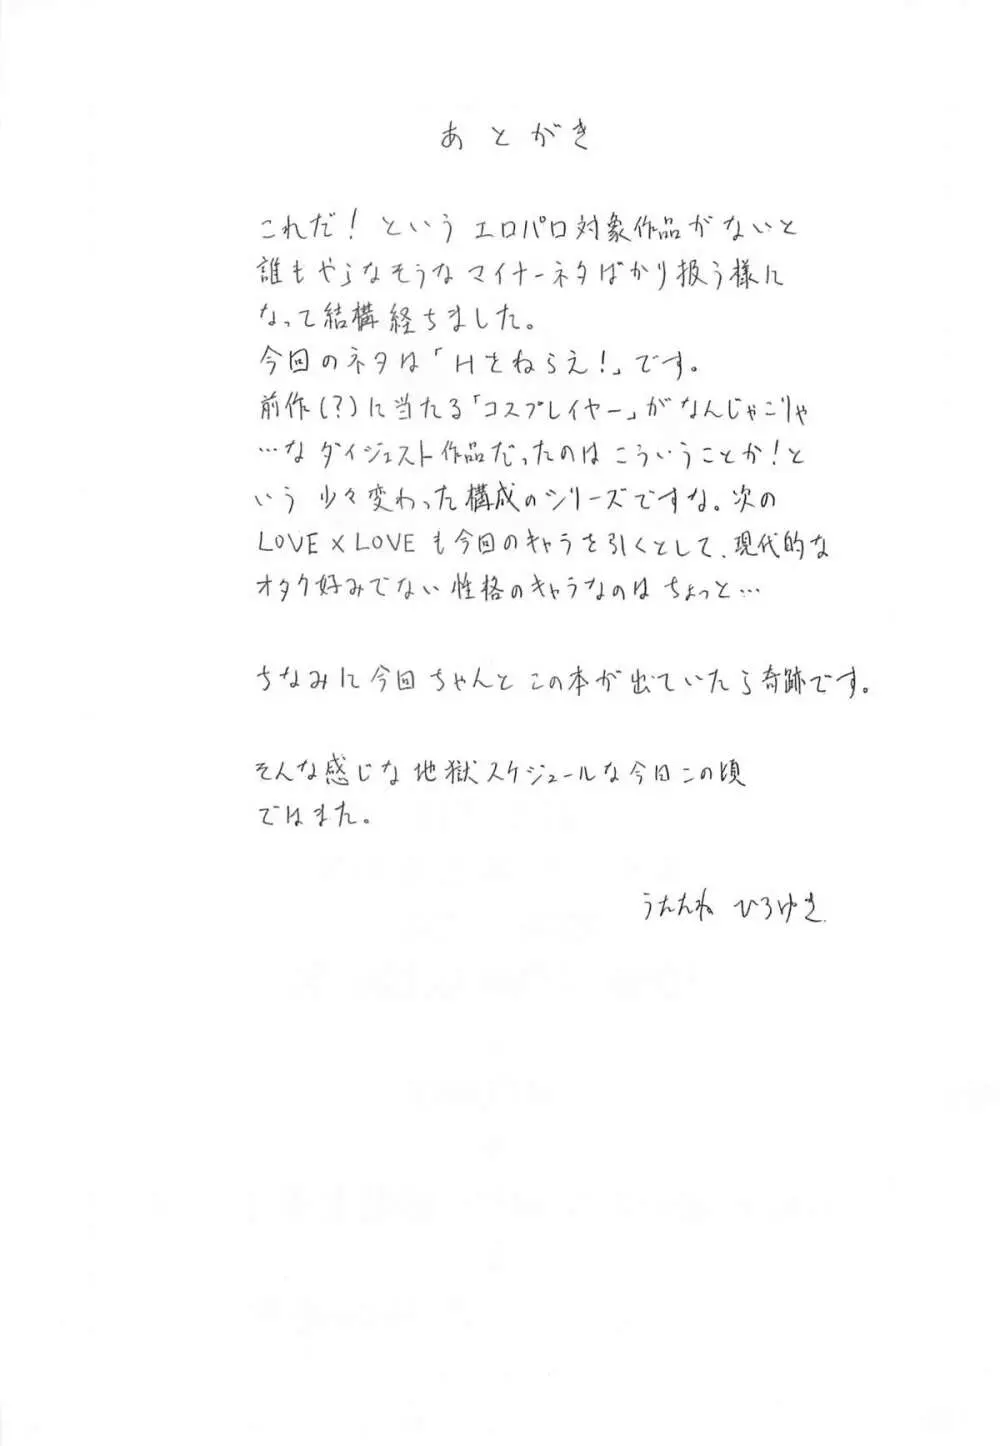 あとがき
これだ！というエロパロ対象作品がないと
誰もやらなそうなマイナーネタばかり扱う様に
なって結構経ちました。
今回のネタは「Hをねらえ！」です。
前作(？)に当たる「コスプレイヤー」がなんじゃこりゃ
…なダイジェスト作品だったのはこういうことか！と
いう少々変わった構成のシリーズですな。次の
LOVE×LOVEも今回のキャラを引くとして、現代的な
オタク好みでない性格のキャラなのはちょっと…
ちなみに今回ちゃんとこの本が出ていたら奇跡です。
そんな感じな地獄スケジュールな今日この頃
ではまた。
うたたね ひろゆき